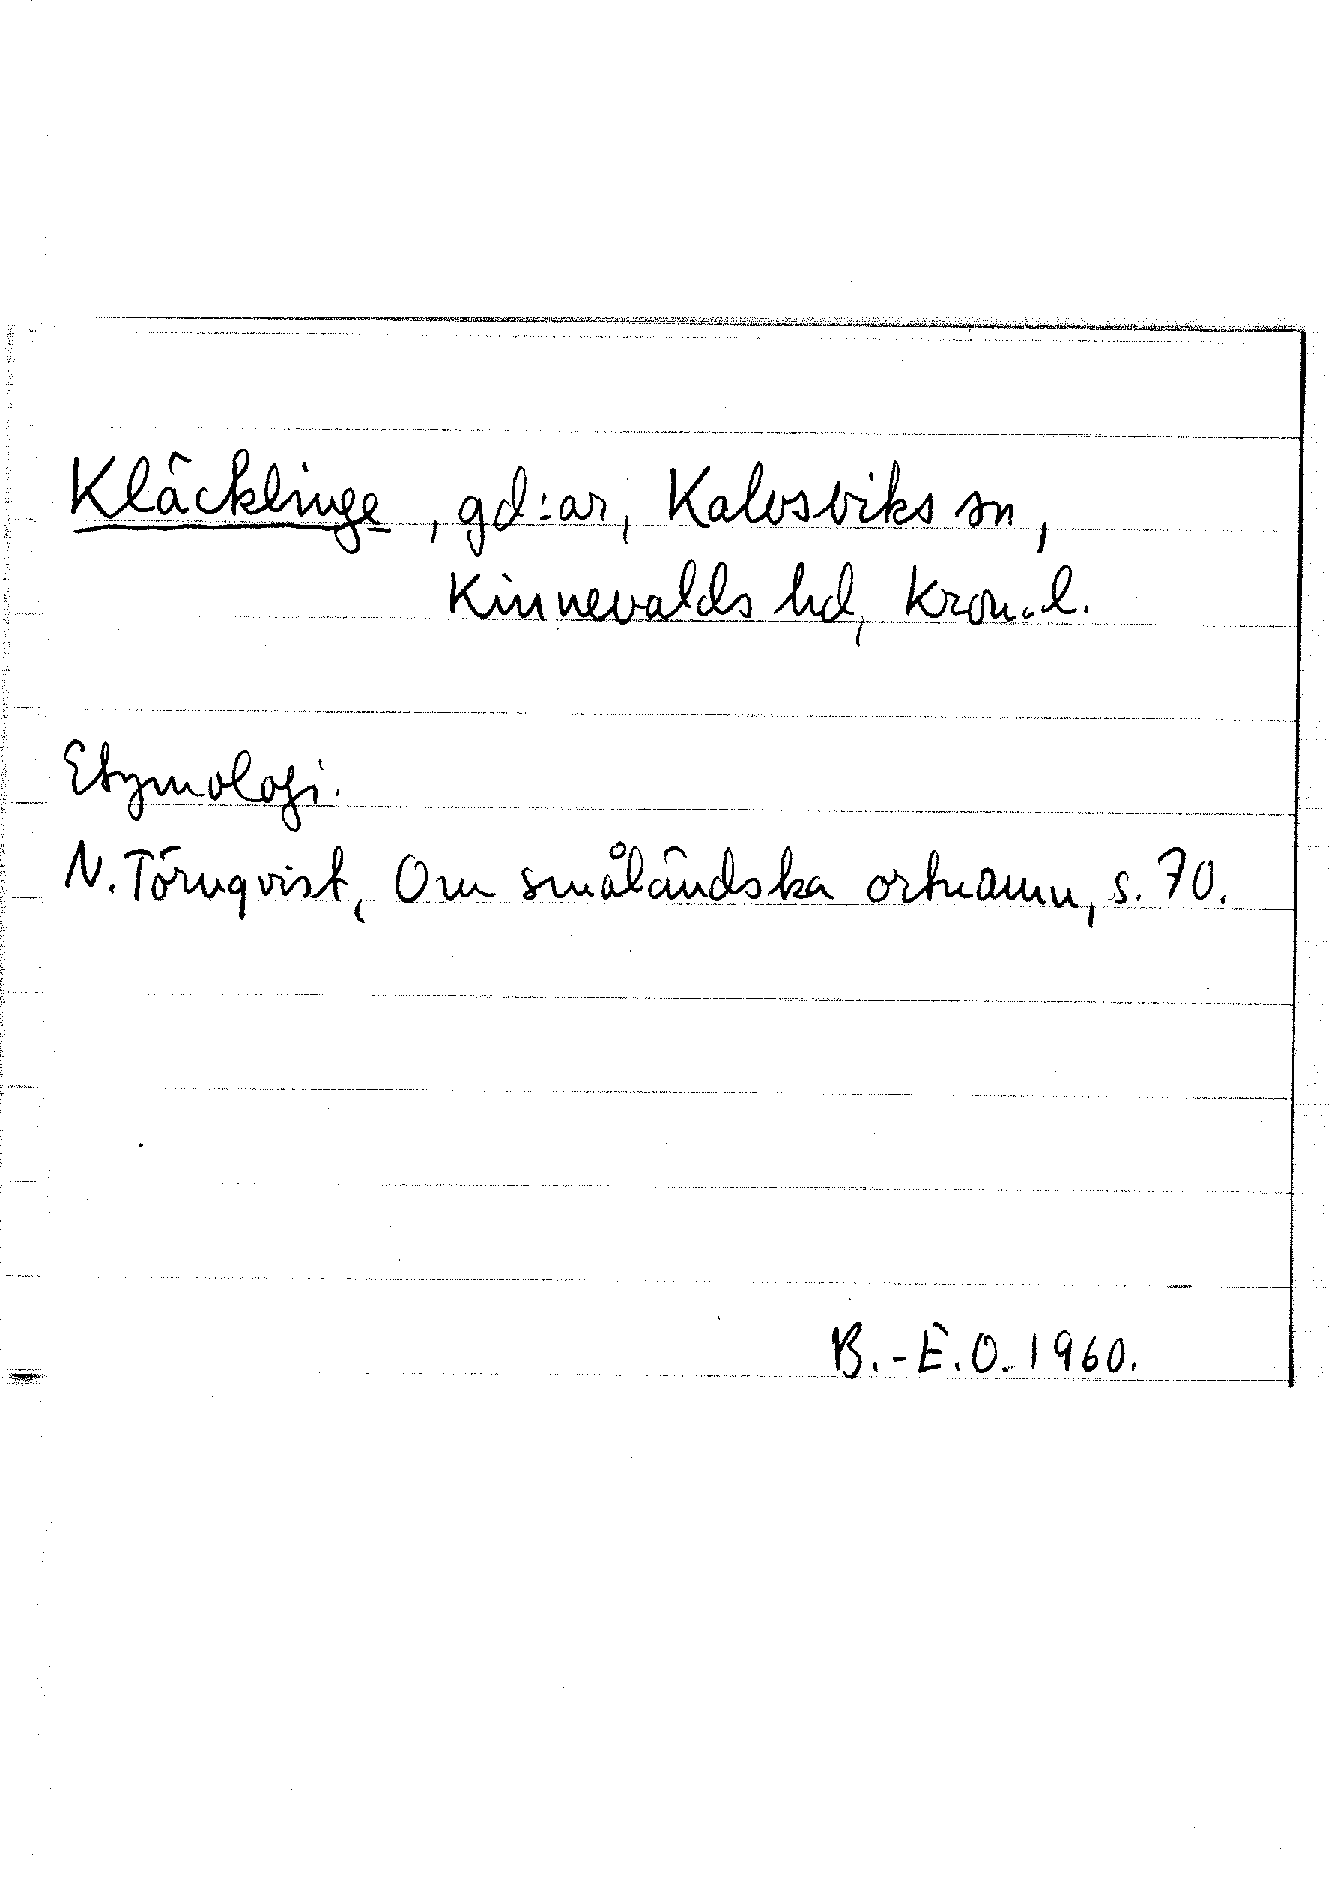 Kläcklinge, gd:ar, Kalvsviks sn,
Kinnevalds hd, Kron.l.
Etymologi.
N. Törnqvist, Om småländska ortnamn, s. 70.
B.-E.O. 1960.